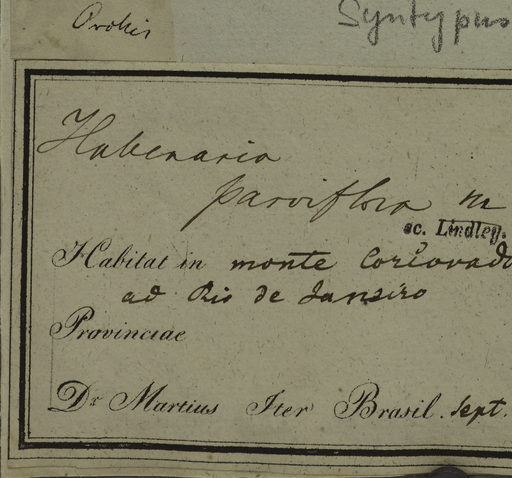 Orchis
Syntypus
Habenaria
parviflora m
sc. Lindley.
Habitat in monte Corcovado
ad Rio de Janeiro
Provinciae
Dr. Martius Iter Brasil. Sept.